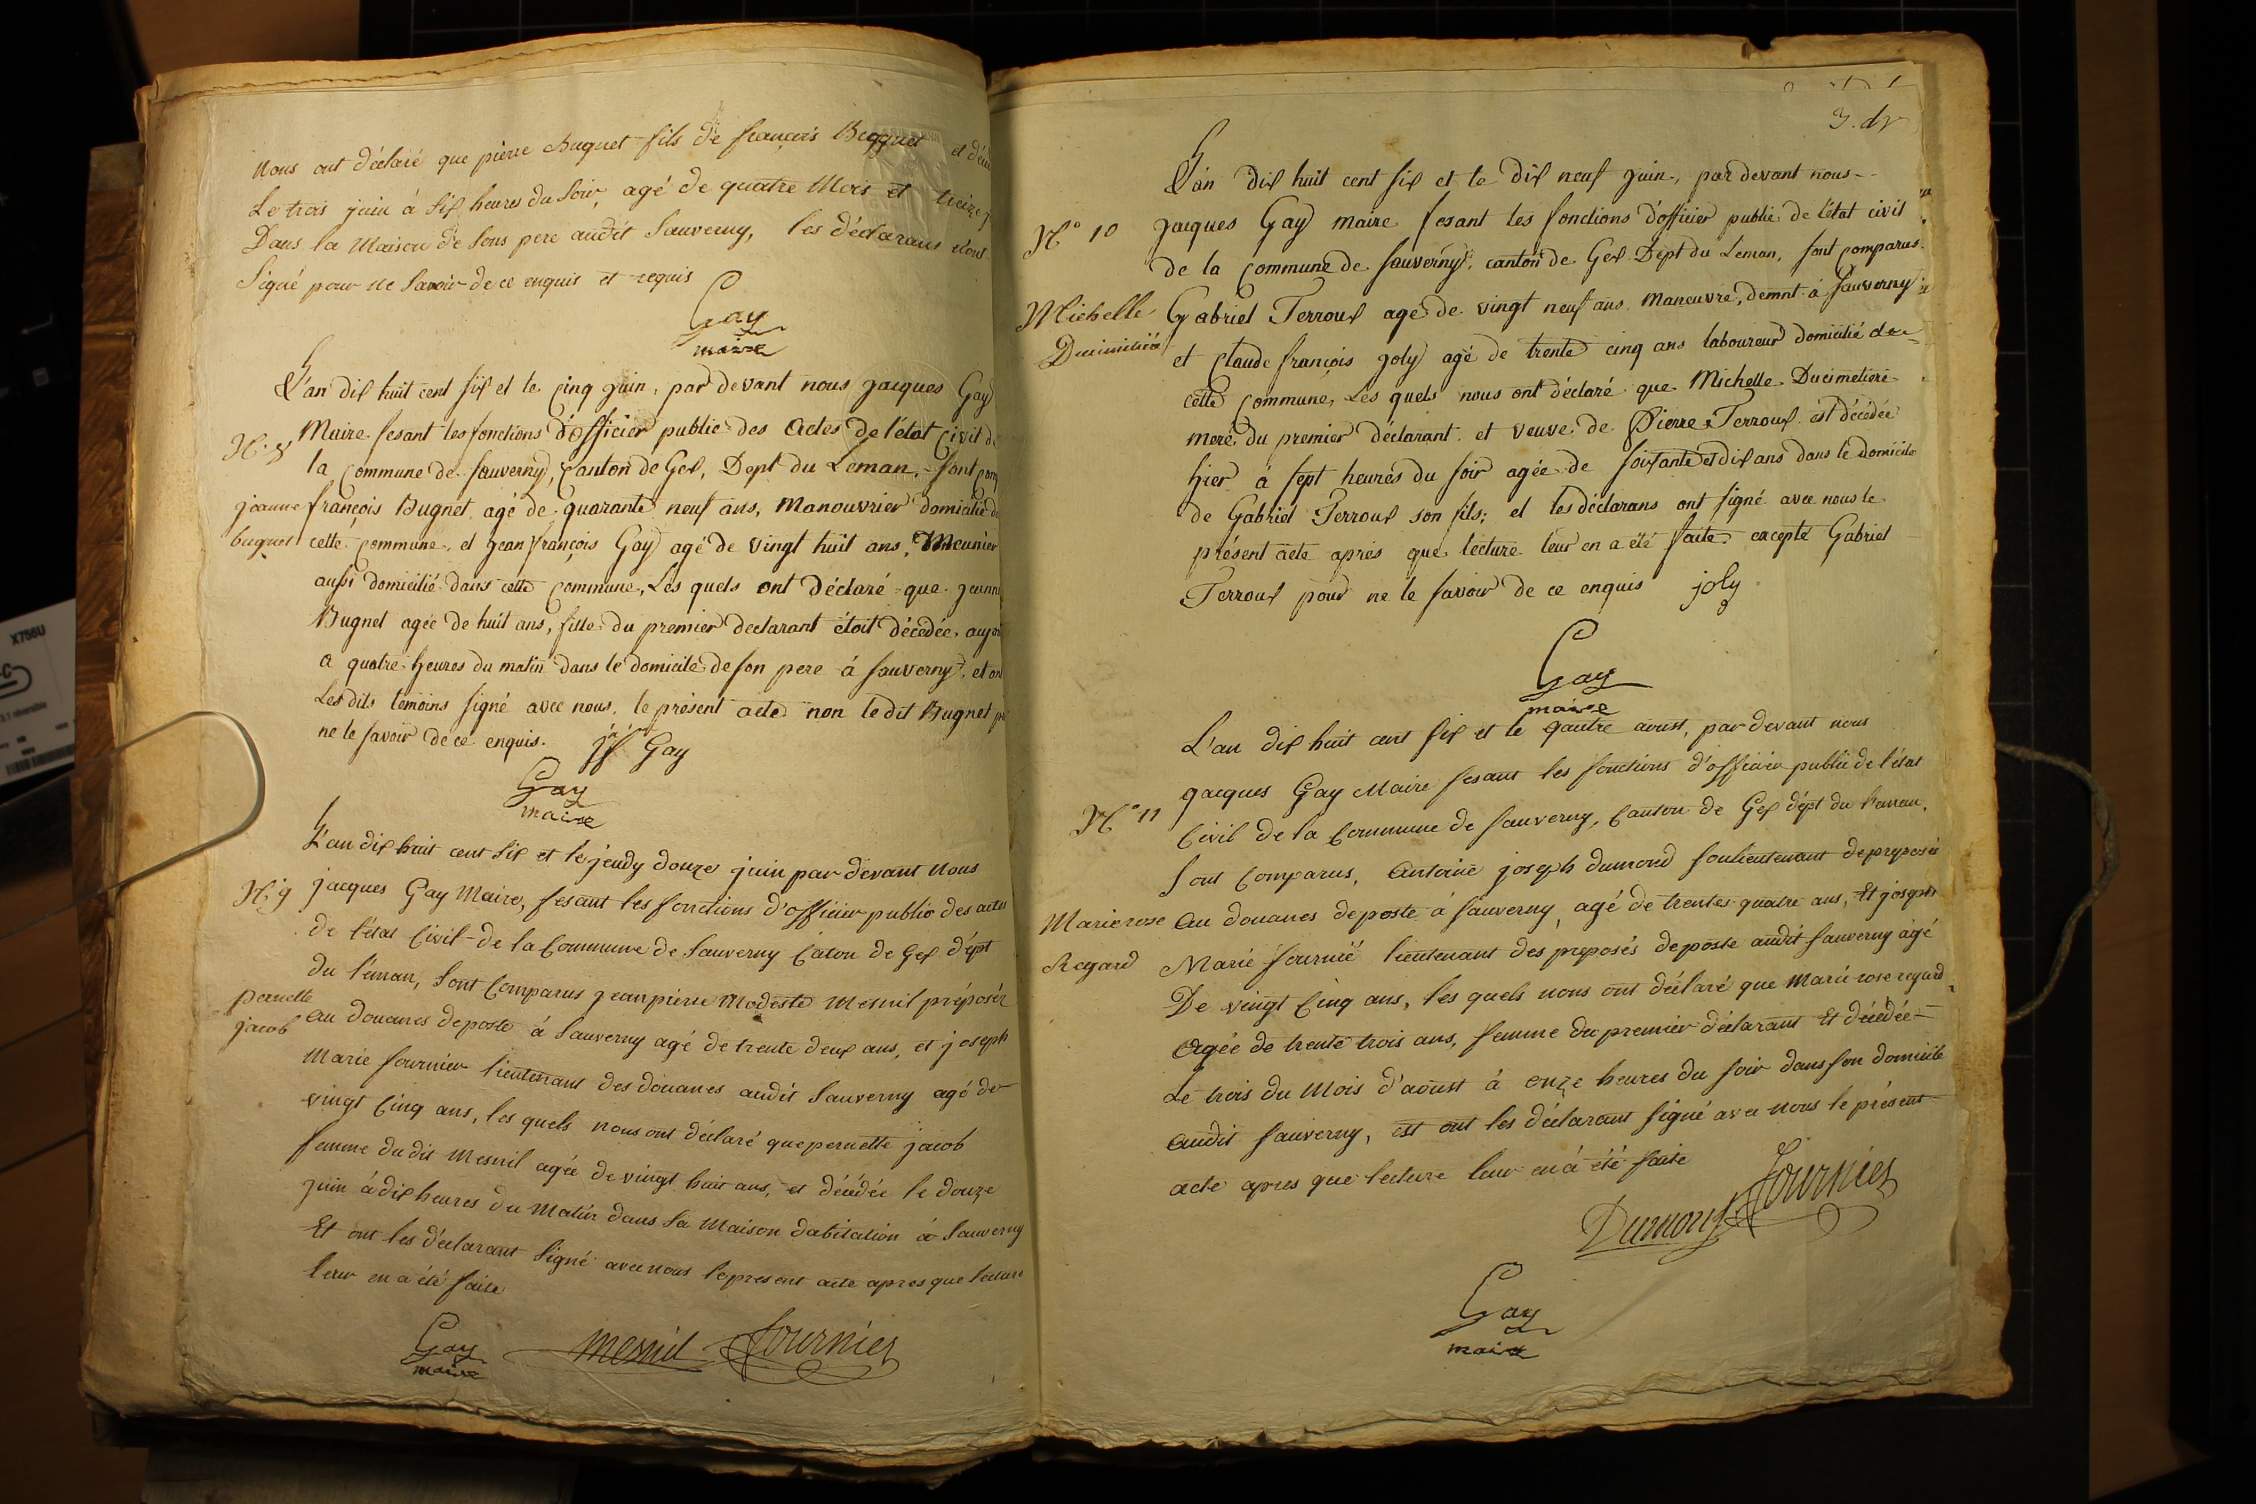 Nous ont déclaré que pierre Buguet fils de françois Bugguet et
Le trois juin à Six heures du Soir, agé de quatre Mois et treize
Dans la Maison de Sons pere audit Sauverny, les déclarans n'ont
Signé pour ne Savoir de ce enquis et requis
Gay
maire
L'an dix huit cent six et le cinq juin, par devant nous jacques Gay
N.° 8 Maire fesant les fonctions d'officier public des actes de l'état civil de
la commune de Sauverny, canton de Gex, Dept du Leman, sont
jeanne françois Bugnet agé de quarante neuf ans, Manouvrier domicilié de
buguet cette commune, et jean françois Gay agé de vingt huit ans, Meunier
aussi domicilié dans cette commune, Les quels ont déclaré que
Bugnet agée de huit ans, fille du premier declarant étoit décédée,
a quatre heures du matin dans le domicile de son pere à sauverny, et ont
Les dits temoins signé avec nous, le présent acte non le dit Bugnet
ne le savoir de ce enquis. jf Gay
Gay
maire
L'an dix huit cent six et le jeudy douze juin par devant Nous
N.° 9 jacques Gay Maire, fesant les fonctions d'officier public des actes
de l'état Civil de la Commune de Sauverny Caton de Gex dépt
du léman, Sont Comparus jean pierre Modeste Mesnil préposér
pernette
jacob au douanes de poste à Sauverny agé de trente deux ans, et joseph
Marie fournier lieutenant des douanes audit Sauverny agé de
vingt Cinq ans, les quels nous ont déclaré que pernette jacob
femme du dit Mesnil agée de vingt huit ans, et décédée le douze
juin à dix heures du Matin dans Sa Maison dabitation à Sauverny
Et ont les déclarant Signé avec nous le present acte apres que lecture
leur en a été faite
Gay
maire
Mesnil
Fournier
3.
L'an dix huit cent six et le dix neuf juin, par devant nous
N.° 10 jacques Gay maire fesant les fonctions d'officier public de l'état civil
de la commune de Sauverny, canton de Gex Dept du Leman, sont comparus
Michelle Gabriel Terroux agé de vingt neuf ans Maneuvre, demnt à Sauverny
et Claude françois joly agé de trente cinq ans laboureur domicilié de
cette commune, Les quels nous ont déclaré que Michelle Ducimetiere
mere du premier déclarant et veuve de Pierre Terroux est décédée
hier à sept heures du soir agée de soixante et dix ans dans le domicile
de Gabriel Terroux son fils; et les déclarans ont signé avec nous le
présent acte après que lecture leur en a été faite excepté Gabriel
Terroux pour ne le savoir de ce enquis joly
Gay
maire
L'an dix huit cent six et le qautre aoust, par devant nous
jacques Gay Maire fesant les fonctions d'officier public de l'état
N.° 11
Civil de la Commune de Sauverny, Canton de Gex dépt du
Sont Comparus, Antoine joseph dumond soulieutenant de preposés
Marie rose au douanes de poste à Sauverny, agé de trentes quatre ans, Et joseph
Regard Marie fournié lieutenant des preposés de poste audit Sauverny agé
De vingt Cinq ans, les quels nous ont déclaré que Marie rose regard
Agée de trente trois ans, femme du premier déclarant Et décédée
Le trois du Mois d'aoust à onze heures du soir dans son domicile
audit Sauverny, est ont les déclarant signé avec nous le présent
acte apres que lecture leur en à été faite
Fournier
Dumont
Gay
maire
X756U